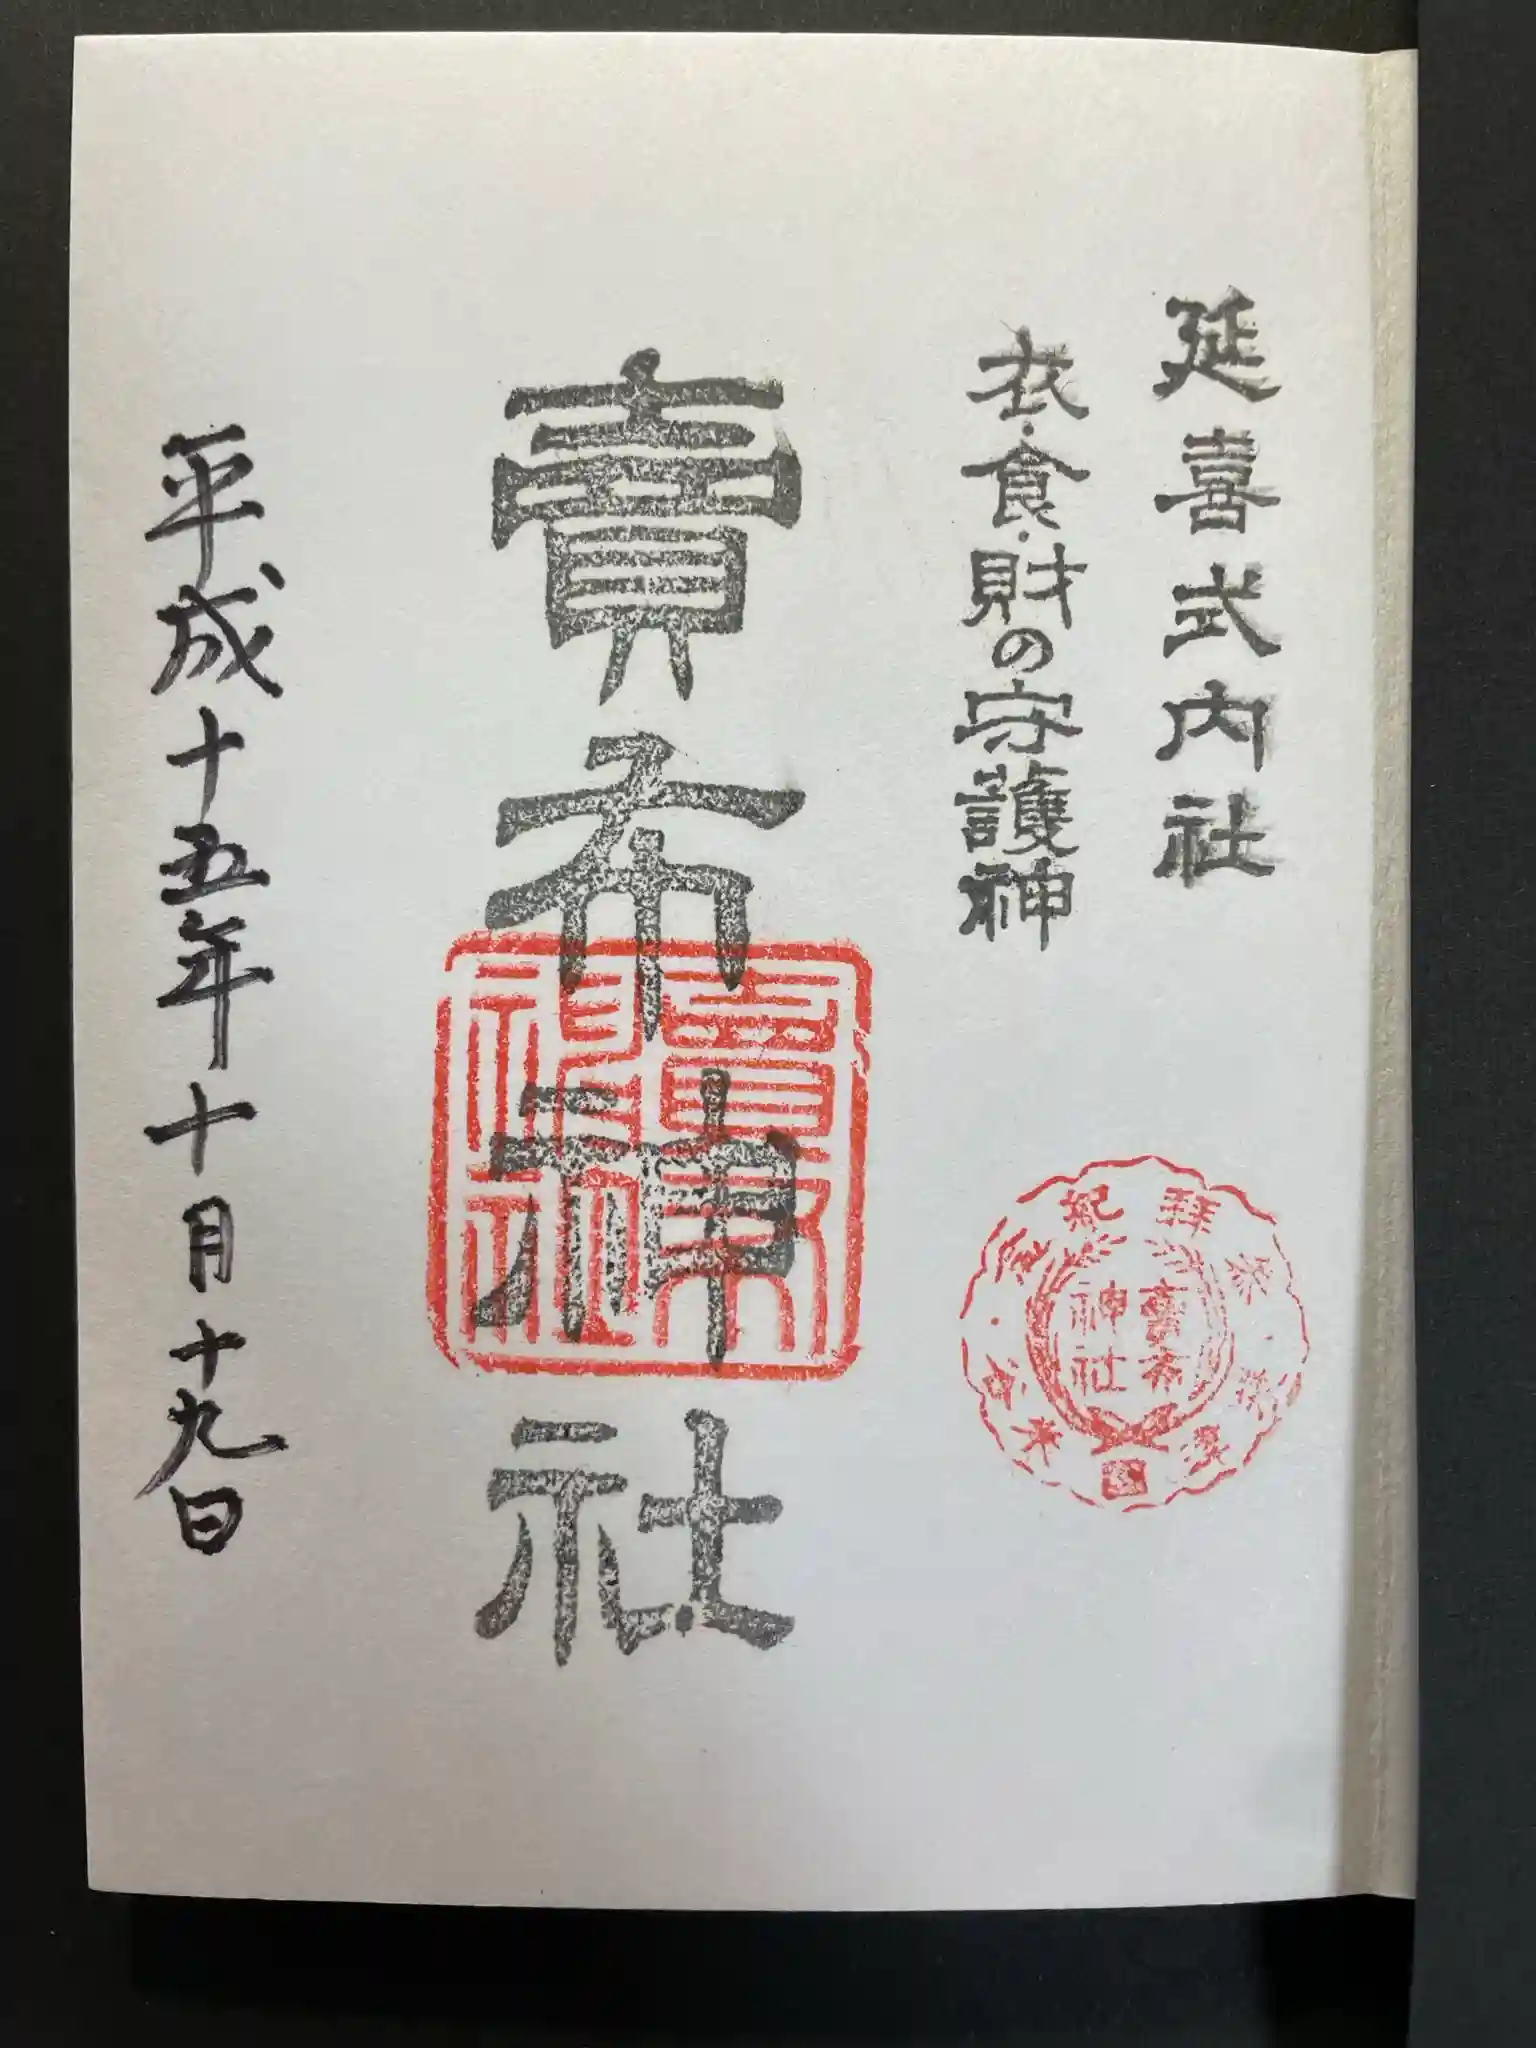 延喜式内社
衣・食・財の守護神
賣布神社
賣布神社
賣布
神社
平成十五年十月十九日